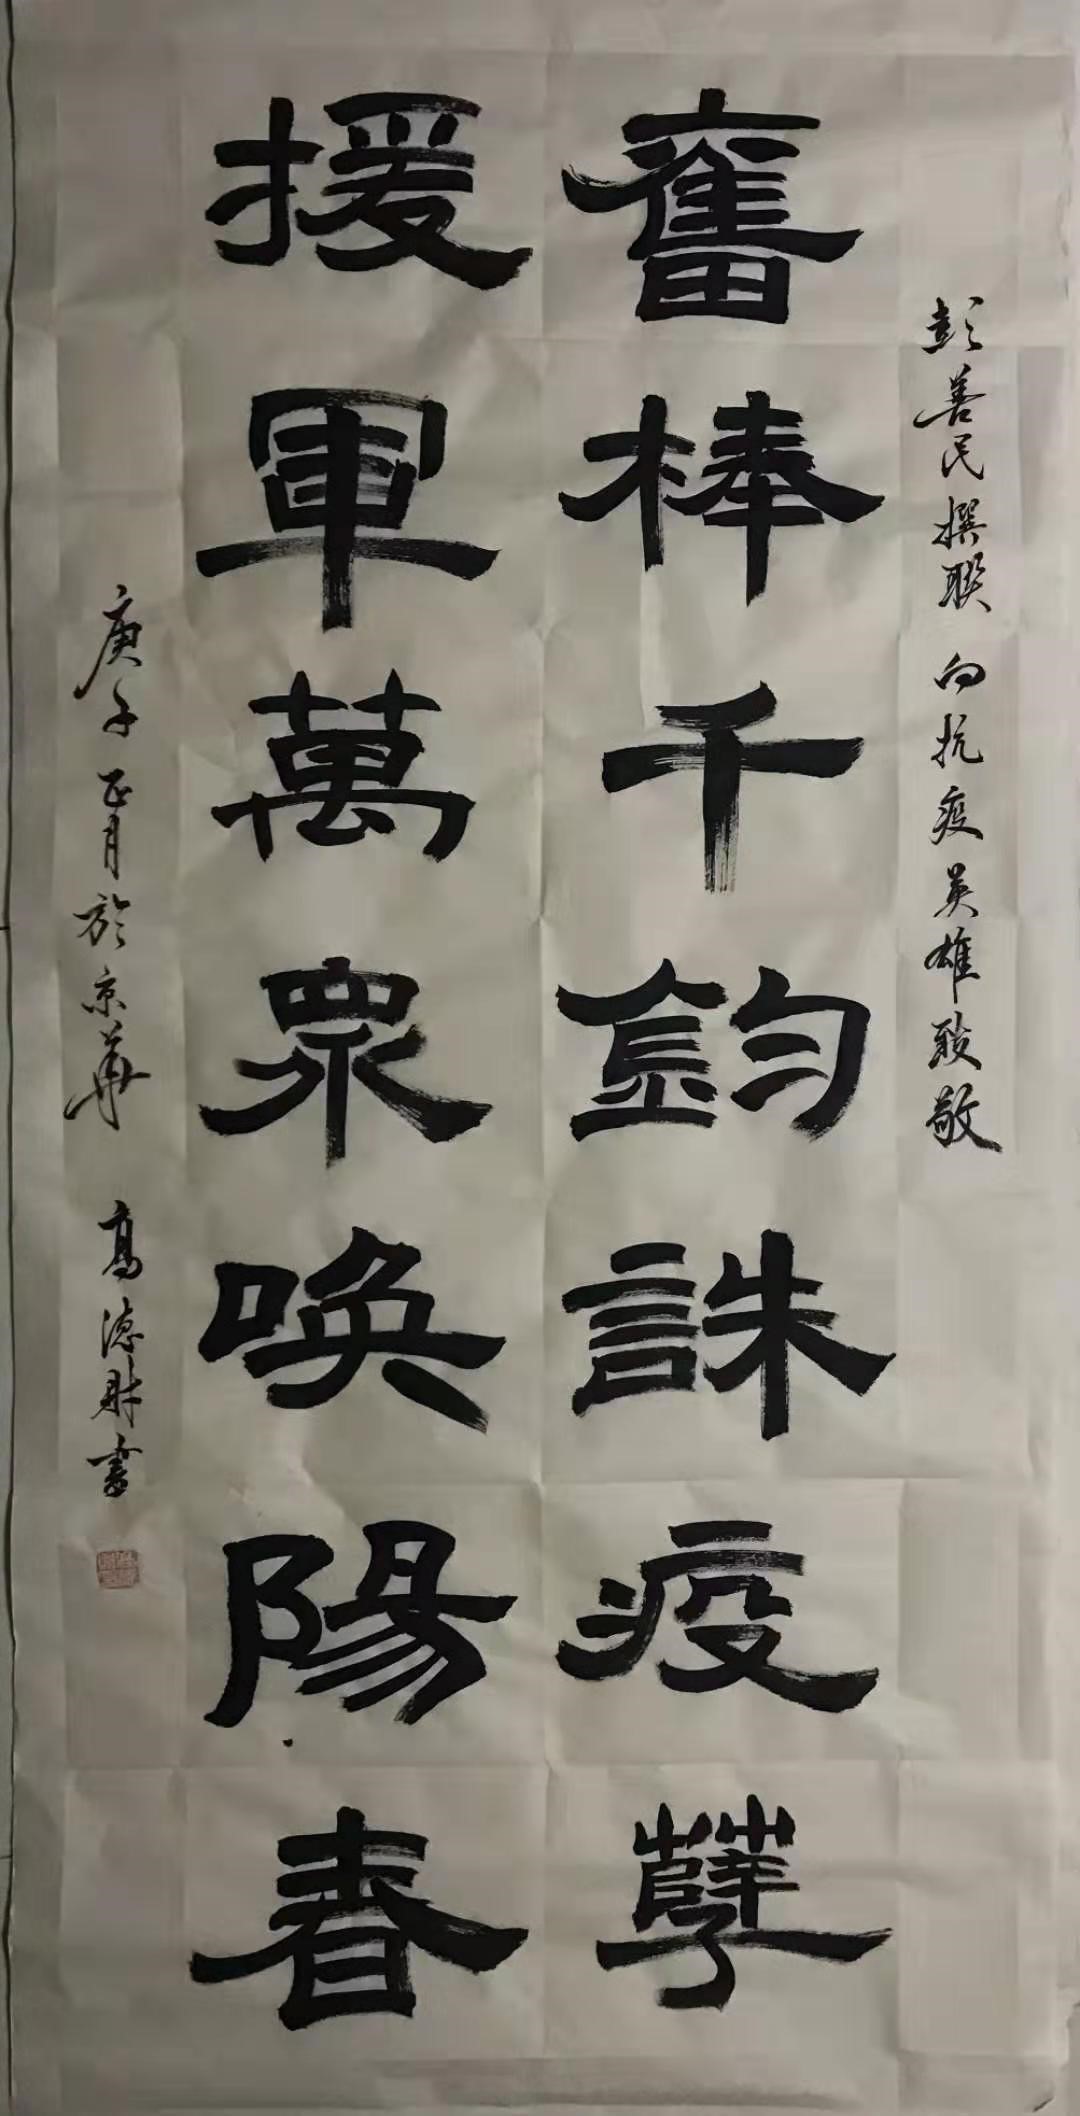 彭善民撰联 向抗疫英雄致敬
奮棒千鈞誅疫孽
援軍萬眾唤陽春
庚子正月於京華 高德財書